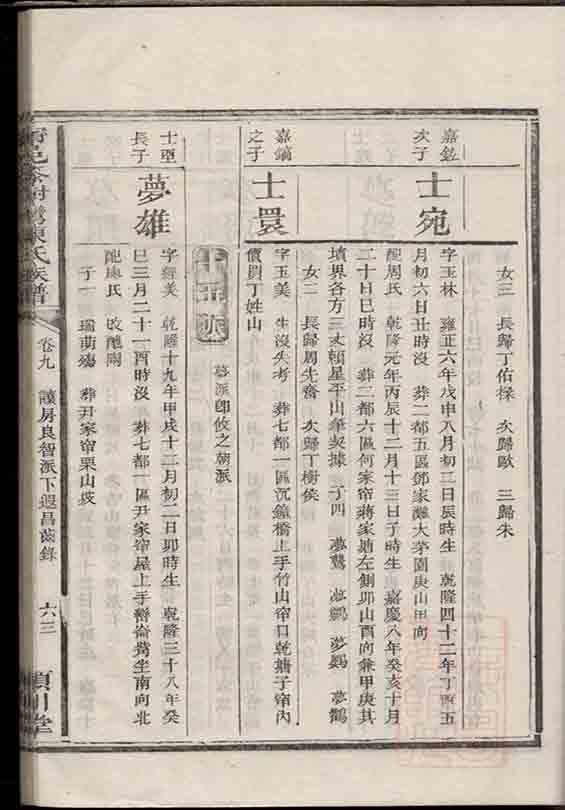 女三 長歸丁佑祿 次歸歐 三歸朱
嘉
次子
士宛
字玉林 雍正六年戊申八月初二日辰時生 乾隆四十二年丁酉五
月初六日丑時沒 葬二都五區鄧家灘大茅園庚山甲向
配周氏 乾隆元年丙辰十二月十三日子時生 嘉慶八年癸亥十月
二十日巳時沒 葬三都六區何家帘蔣家塘左側卯山酉向兼甲庚其
墳界各方三丈賴星平山筆契據 子四 夢鷲 夢鸚 夢鶚
女二 長歸周先 次歸丁樹侯
嘉鏑
之子
士睘
字玉美 生沒失考 葬七都一區沉鐘橋上手竹山帘口乾塘子帘內
價買丁姓山
十五派
夢派即攸之朝派
士
長子
夢雄
字經美 乾隆十九年甲戌十二月初二日卯時生 乾隆三十八年癸
巳三月二十一酉時沒 葬七都一區尹家帘屋上手 坐南向北
配陳氏 改醮
子一 瑞萌殤 葬尹家帘栗山坡
陳氏族譜
卷九 讓房良智派下遐昌齒錄
六三
潁川堂